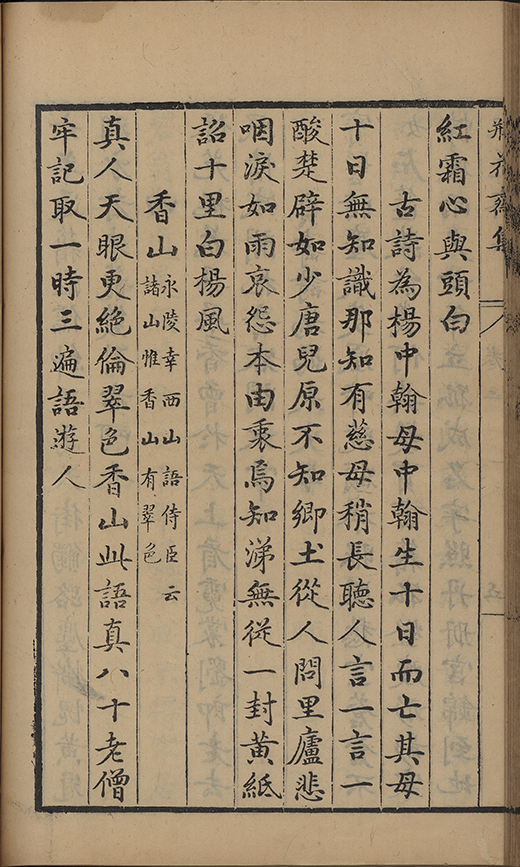 瓶花齋集
紅霜心與頭白
古詩為楊中翰母中翰生十日而亡其母
十日無知識那知有慈母稍長聽人言一言一
酸楚辟如少唐兒原不知鄉土從人問里廬悲
咽淚如雨哀怨本由衷烏知涕無從一封黃紙
詔十里白楊風
香山永陵幸西山語侍臣云
諸山惟香山有翠色
真人天眼更絕倫翠色香山此語真八十老僧
牢記取一時三遍語遊人